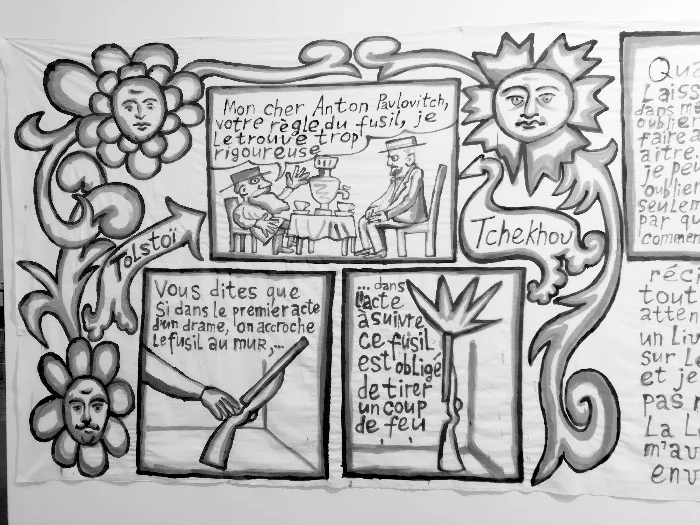 Mon cher Anton Pavlovitch,
votre règle du fusil, je
le trouve trop
rigoureuse
Tolstoï
Tchekhov
Vous dites que
si dans le premier acte
d'un drame, on accroche
le fusil au mur,...
... dans
l'acte
à suivre
ce fusil
est obligé
de tirer
un coup
de feu
Qua
Laiss
dans m
oublie
faire
aitre.
je peu
oublie
seulem
par qu
commen
réci
tout
atten
un liv
sur Le
et je
pas n
La L
m'av
env